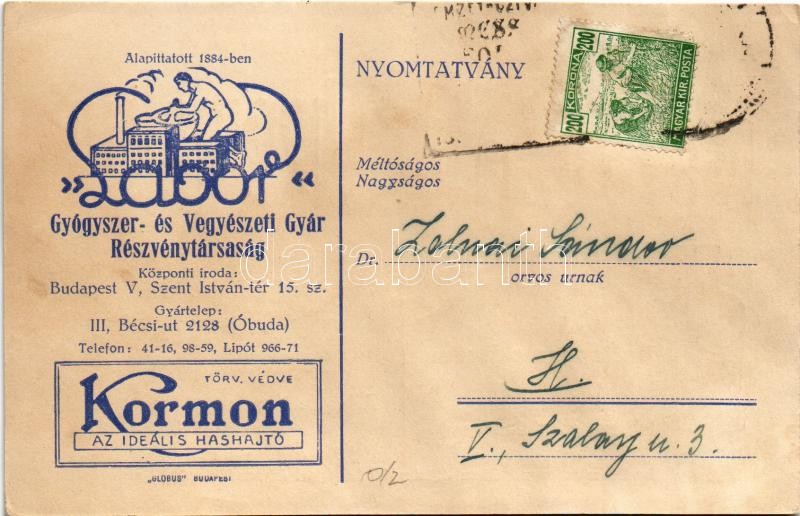 Alapittatott 1884-ben
»Labor«
Gyógyszer- és Vegyészeti Gyár
Részvénytársaság
Központi iroda:
Budapest V, Szent István-tér 15. sz.
Gyártelep:
III, Bécsi-ut 2128 (Óbuda)
Telefon: 41-16, 98-59, Lipót 966-71
TÖRV. VÉDVE
Kormon
AZ IDEÁLIS HASHAJTÓ
„GLÓBUS" BUDAPEST
NYOMTATVÁNY
200 KORONA 200
MAGYAR KIR. POSTA
Méltóságos
Nagyságos
Dr. Zolnai Sándor
orvos urnak
H.
V., Szalay u. 3.
0/2
darabanth